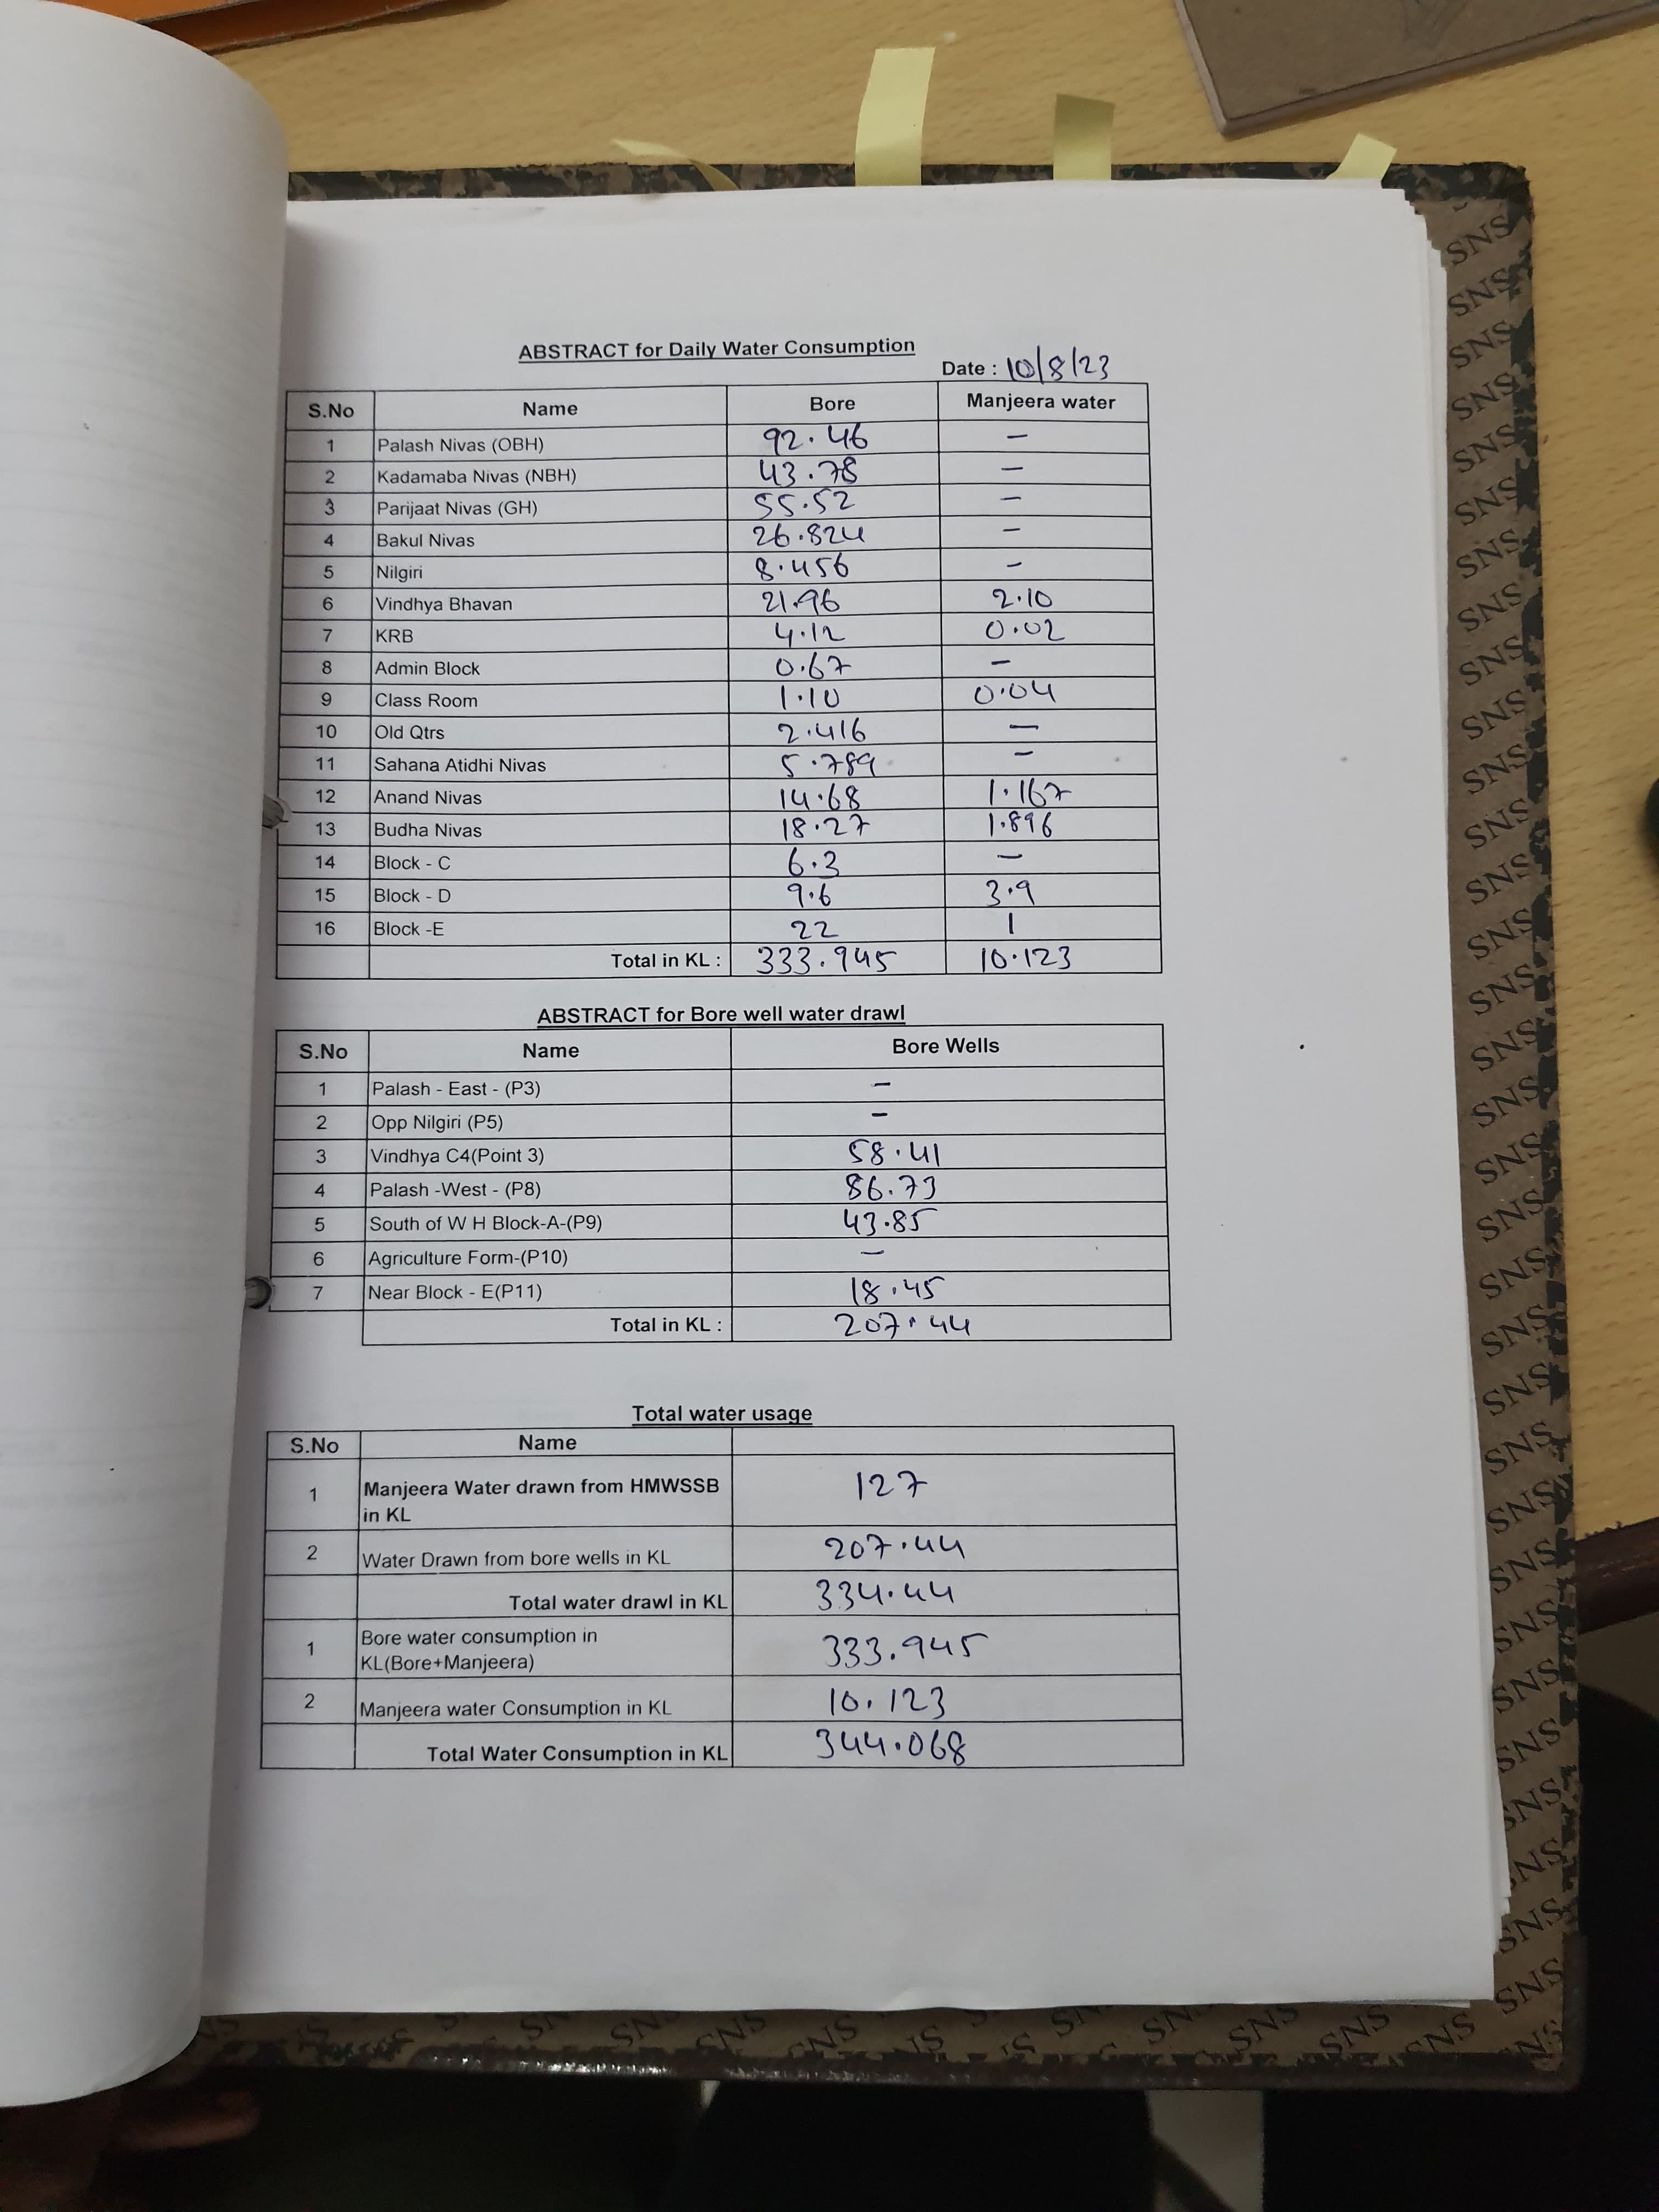 ABSTRACT for Daily Water Consumption
Date : 10/8/23
S.No Name Bore Manjeera water
1 Palash Nivas (OBH) 92.46 –
2 Kadamaba Nivas (NBH) 43.78 –
3 Parijaat Nivas (GH) 55.52 –
4 Bakul Nivas 26.824 –
5 Nilgiri 8.456 –
6 Vindhya Bhavan 21.96 2.10
7 KRB 4.12 0.02
8 Admin Block 0.67 –
9 Class Room 1.10 0.04
10 Old Qtrs 2.416 –
11 Sahana Atidhi Nivas 5.789 –
12 Anand Nivas 14.68 1.167
13 Budha Nivas 18.27 1.896
14 Block - C 6.3 –
15 Block - D 9.6 3.9
16 Block -E 22 1
Total in KL : 333.945 10.123
ABSTRACT for Bore well water drawl
S.No Name Bore Wells
1 Palash - East - (P3) –
2 Opp Nilgiri (P5) –
3 Vindhya C4(Point 3) 58.41
4 Palash -West - (P8) 86.73
5 South of W H Block-A-(P9) 43.85
6 Agriculture Form-(P10) –
7 Near Block - E(P11) 18.45
Total in KL : 207.44
Total water usage
S.No Name
1 Manjeera Water drawn from HMWSSB
in KL 127
2 Water Drawn from bore wells in KL 207.44
Total water drawl in KL 334.44
1 Bore water consumption in
KL(Bore+Manjeera) 333.945
2 Manjeera water Consumption in KL 10.123
Total Water Consumption in KL 344.068
SNS